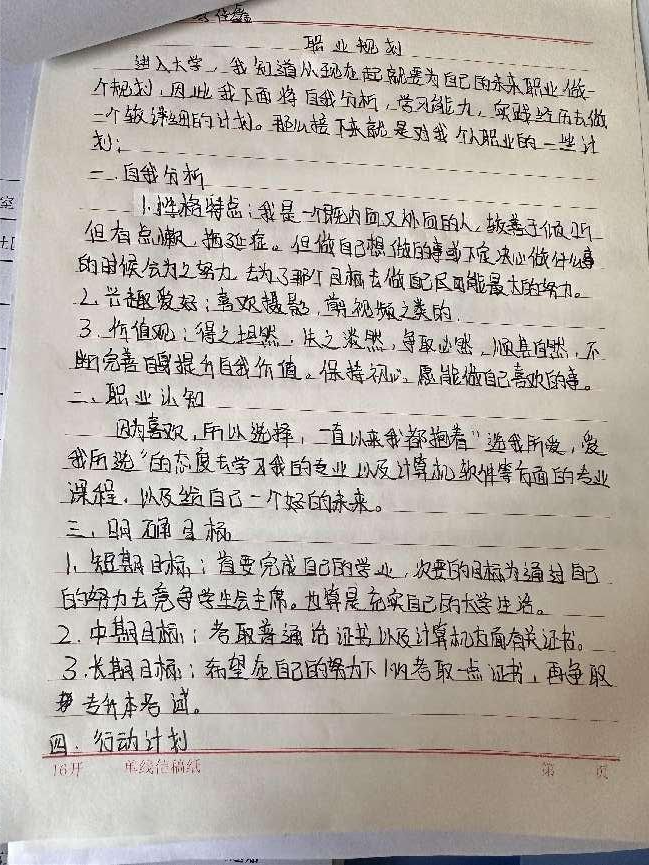 职业规划
进入大学，我知道从现在起就要为自己的未来职业做一
个规划，因此我下面将自我分析，学习能力，实践经历去做
一个较详细的计划。那么接下来就是对我个人职业的一些计
划：
一、自我分析
1.性格特点：我是一个既内向又外向的人，较善于倾听
但有点懒，拖延症。但做自己想做的事或下定决心做什么事
的时候会为之努力，去为了那个目标去做自己尽可能最大的努力。
2.兴趣爱好：喜欢摄影，剪视频之类的.
3.价值观：得之坦然，失之淡然，争取必然，顺其自然，不
断完善自身提升自我价值。保持初心，愿能做自己喜欢的事。
二、职业认知
因为喜欢，所以选择，一直以来我都抱着"选我所爱，爱
我所选"的态度去学习我的专业以及计算机软件等方面的专业
课程，以及给自己一个好的未来。
三、明确目标
1.短期目标：首要完成自己的学业，次要的目标为通过自己
的努力去竞争学生会主席。也算是充实自己的大学生活。
2.中期目标：考取普通话证书以及计算机方面有关证书。
3.长期目标：希望在自己的努力下可以考取一点证书，再争取
专升本考试。
四、行动计划
16开 单线信稿纸 第 页